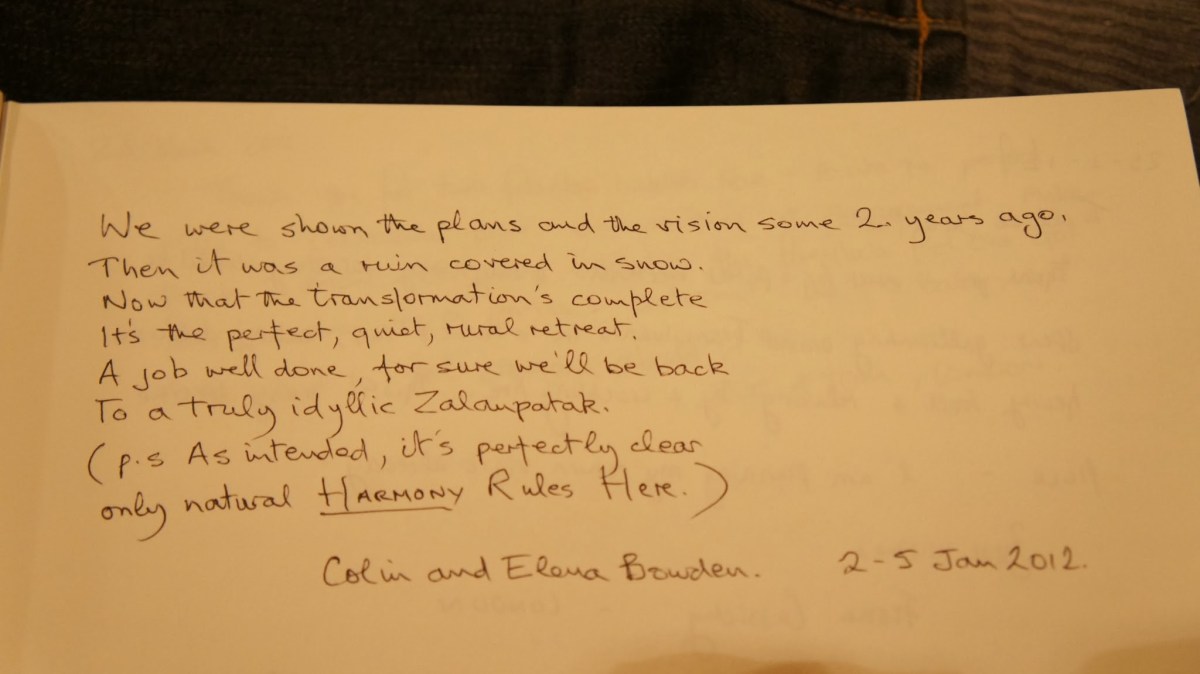 We were shown the plans and the vision some 2 years ago.
Then it was a ruin covered in snow.
Now that the transformation's complete
It's the perfect, quiet, rural retreat.
A job well done, for sure we'll be back
To a truly idyllic Zalaupatak.
(p.s As intended, it's perfectly clear
only natural HARMONY Rules Here.)
Colin and Elena Bowden. 2-5 Jan 2012.